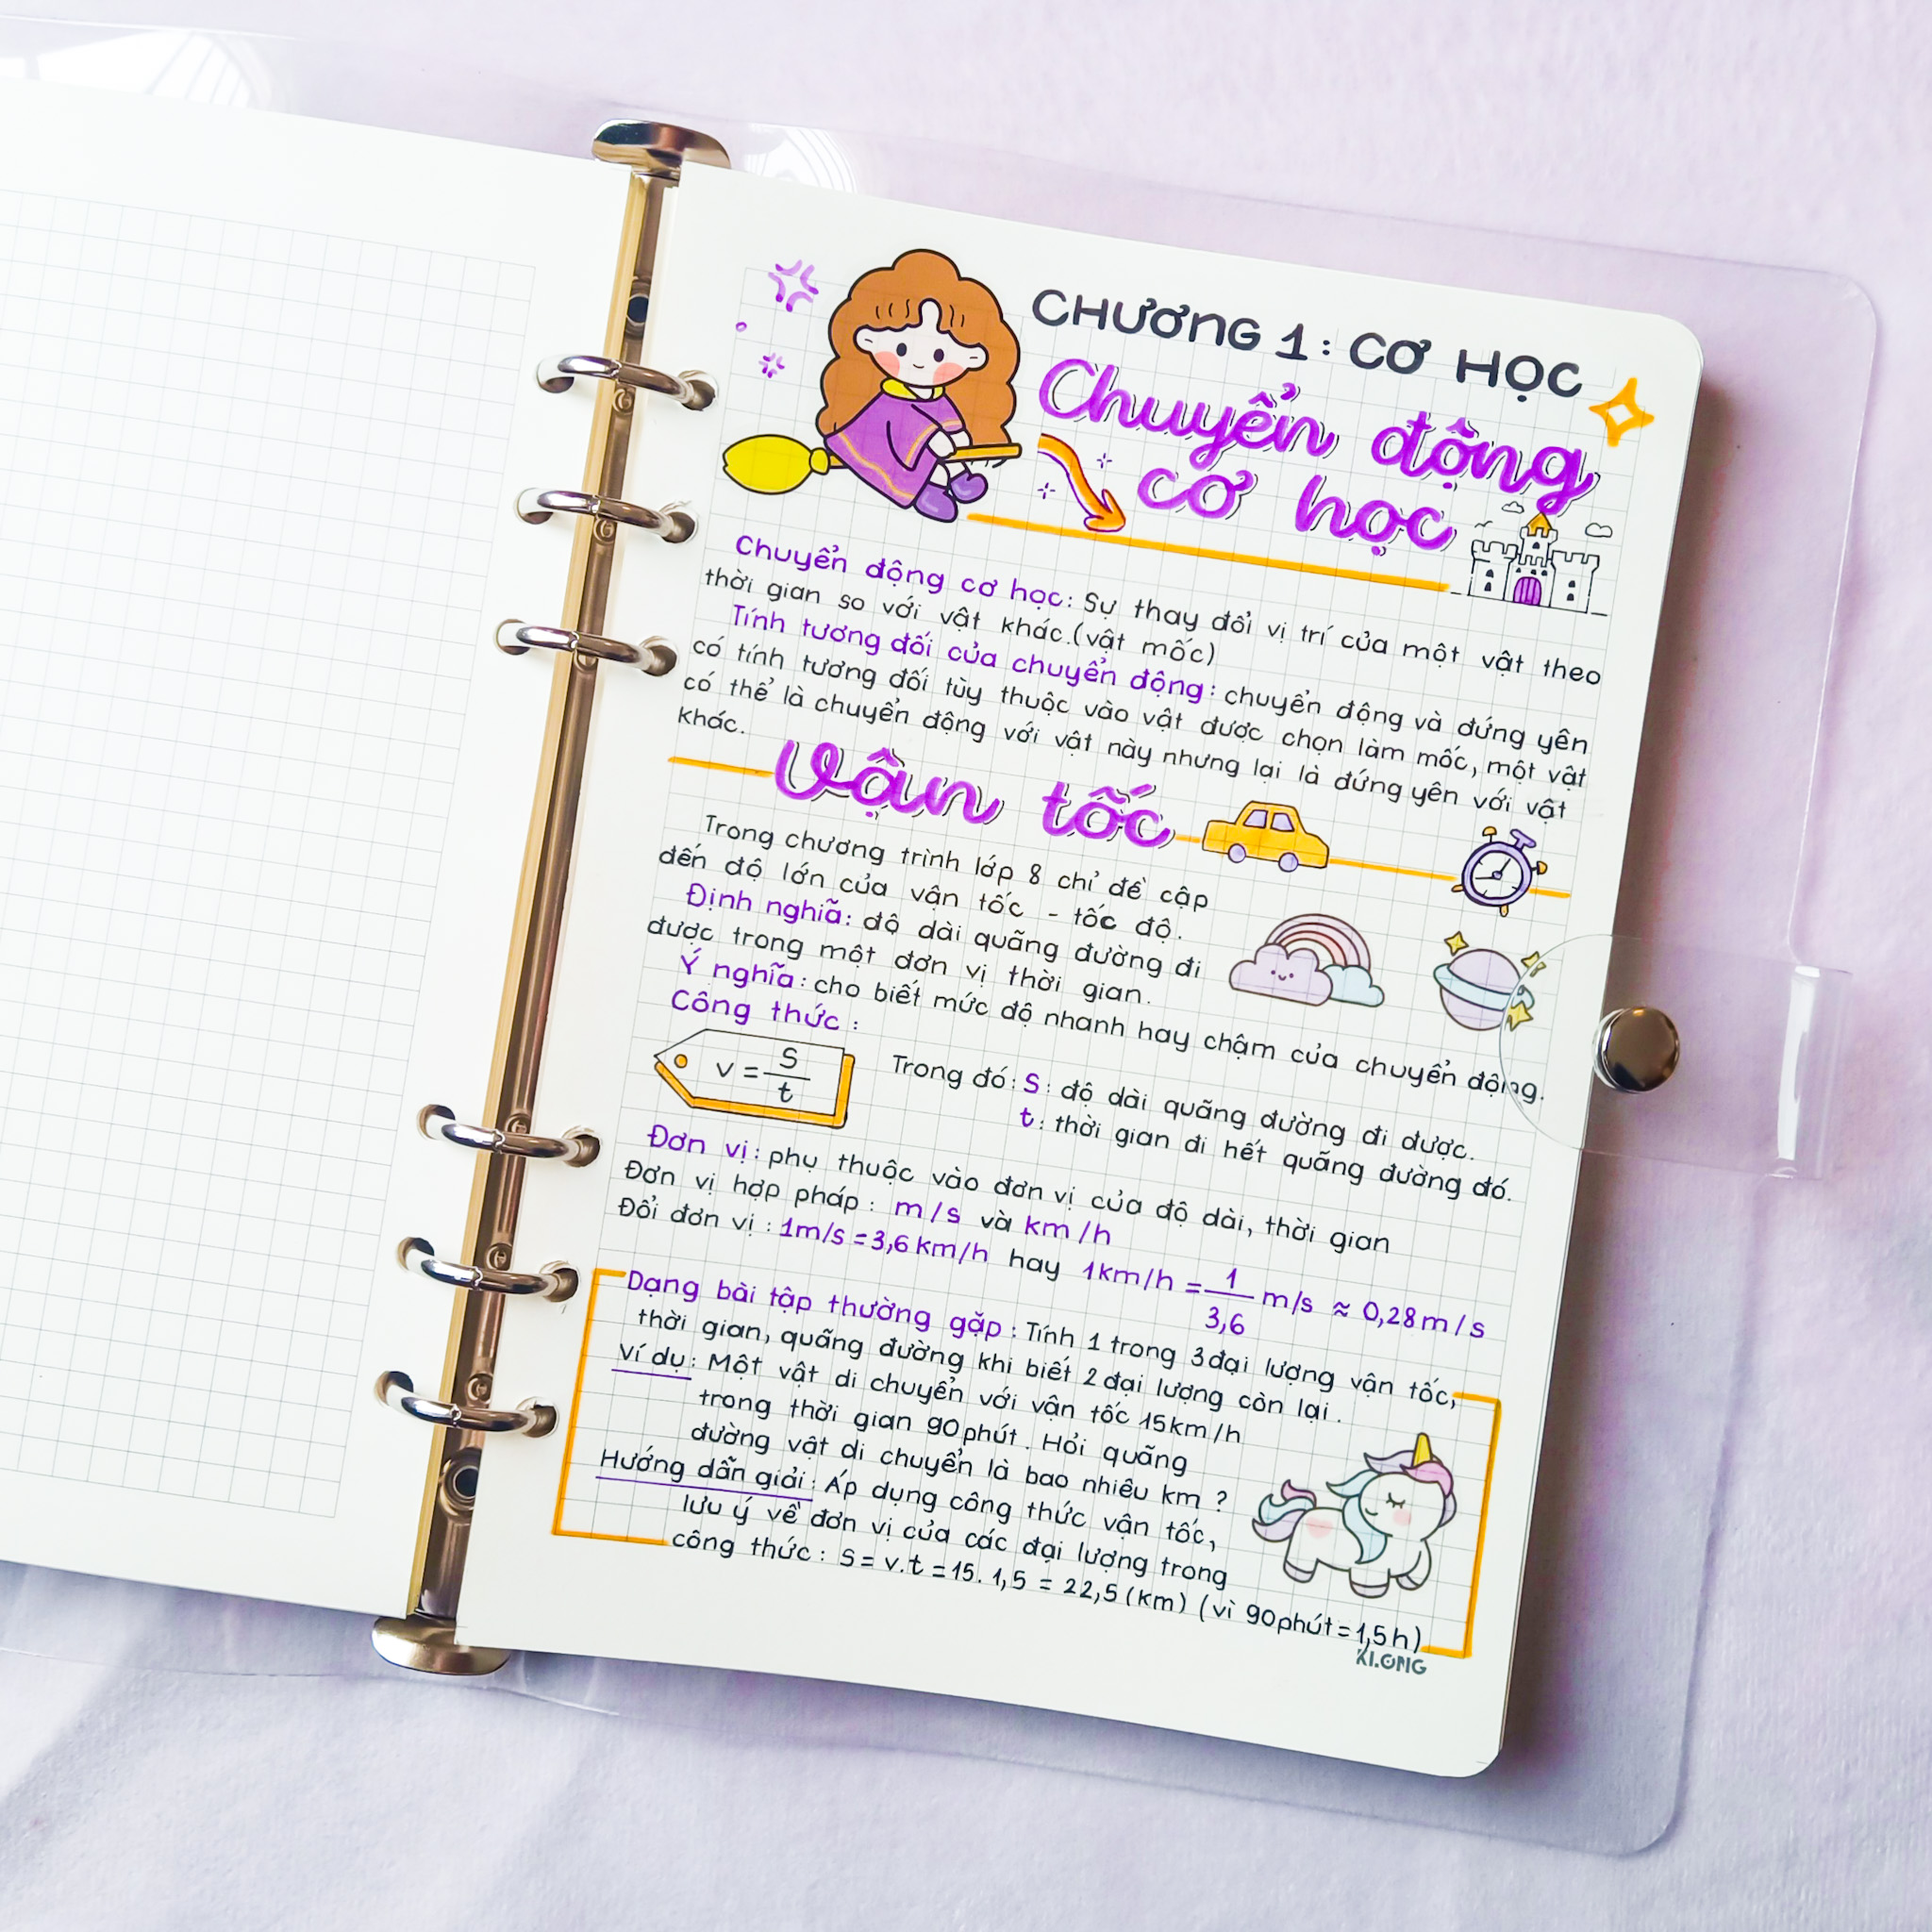 CHƯƠNG 1: CƠ HỌC
Chuyển động
cơ học
Chuyển động cơ học: Sự thay đổi vị trí của một vật theo
thời gian so với vật khác.(vật mốc)
Tính tương đối của chuyển động: chuyển động và đứng yên
có tính tương đối tùy thuộc vào vật được chọn làm mốc, một vật
có thể là chuyển động với vật này nhưng lại là đứng yên với vật
khác.
Vận tốc
Trong chương trình lớp 8 chỉ đề cập
đến độ lớn của vận tốc - tốc độ.
Định nghĩa: độ dài quãng đường đi
được trong một đơn vị thời gian.
Ý nghĩa: cho biết mức độ nhanh hay chậm của chuyển động.
Công thức:
v = S/t
Trong đó: S: độ dài quãng đường đi được.
t: thời gian đi hết quãng đường đó.
Đơn vị: phụ thuộc vào đơn vị của độ dài, thời gian
Đơn vị hợp pháp: m/s và km/h
Đổi đơn vị: 1m/s = 3,6 km/h hay 1km/h = 1/3,6 m/s ≈ 0,28 m/s
Dạng bài tập thường gặp: Tính 1 trong 3 đại lượng vận tốc,
thời gian, quãng đường khi biết 2 đại lượng còn lại.
Ví dụ: Một vật di chuyển với vận tốc 15km/h
trong thời gian 90 phút. Hỏi quãng
đường vật di chuyển là bao nhiêu km ?
Hướng dẫn giải: Áp dụng công thức vận tốc,
lưu ý về đơn vị của các đại lượng trong
công thức: S = v.t = 15. 1,5 = 22,5 (km) (vì 90 phút = 1,5h)
KI.ONG